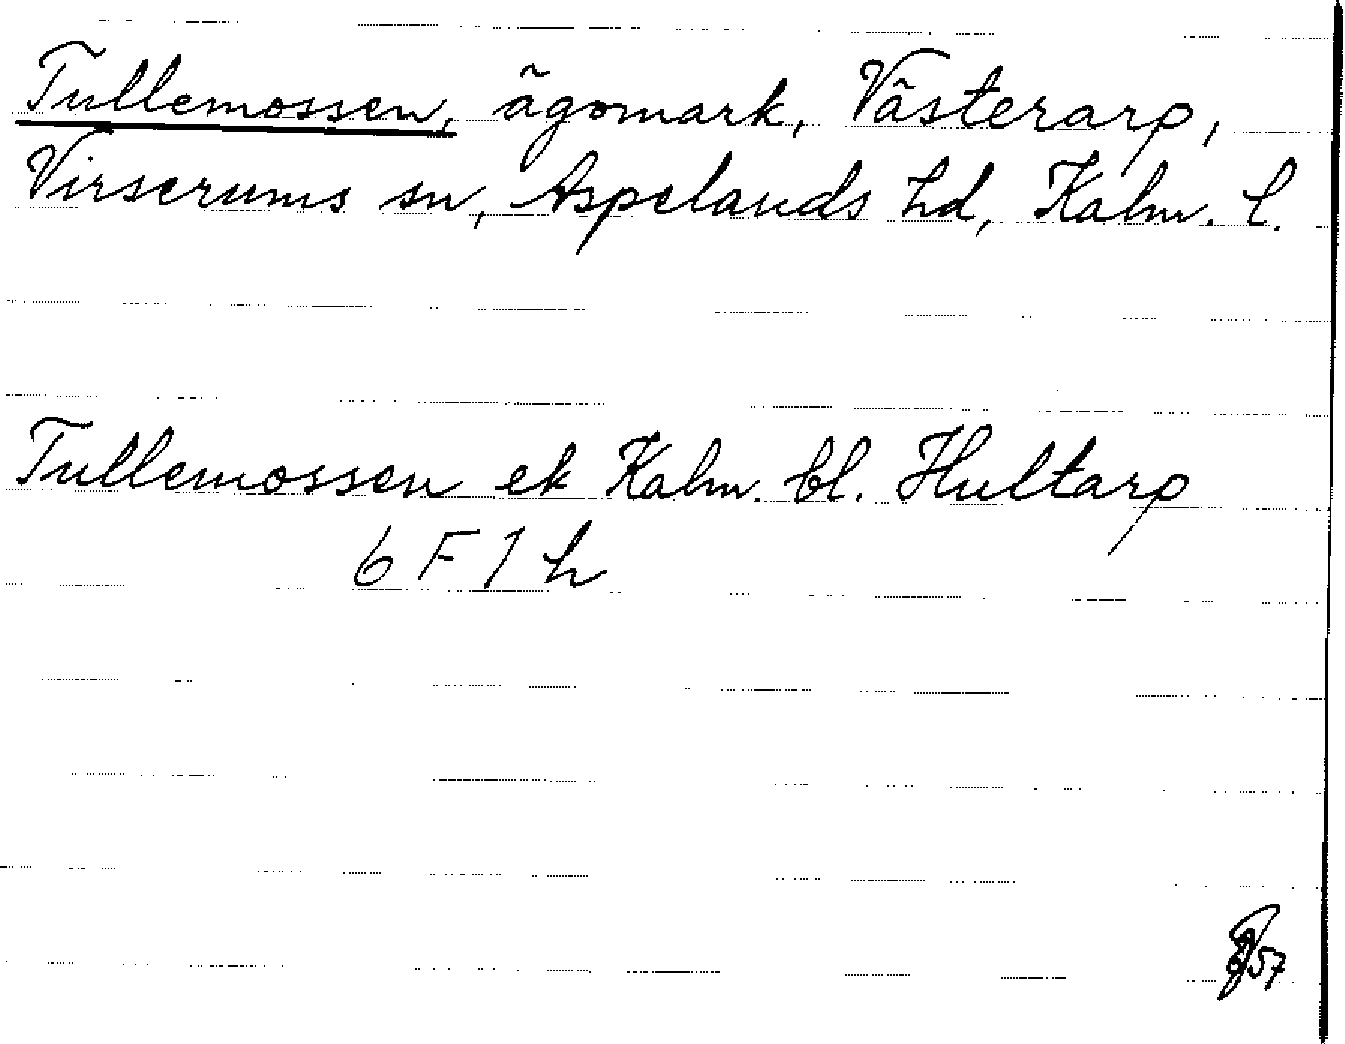 Tullemossen, ägomark, Västerarp,
Virserums sn, Aspelands hd, Kalm. l.
Tullemossen ek Kalm. bl. Hultarp
6 F 1 h
57